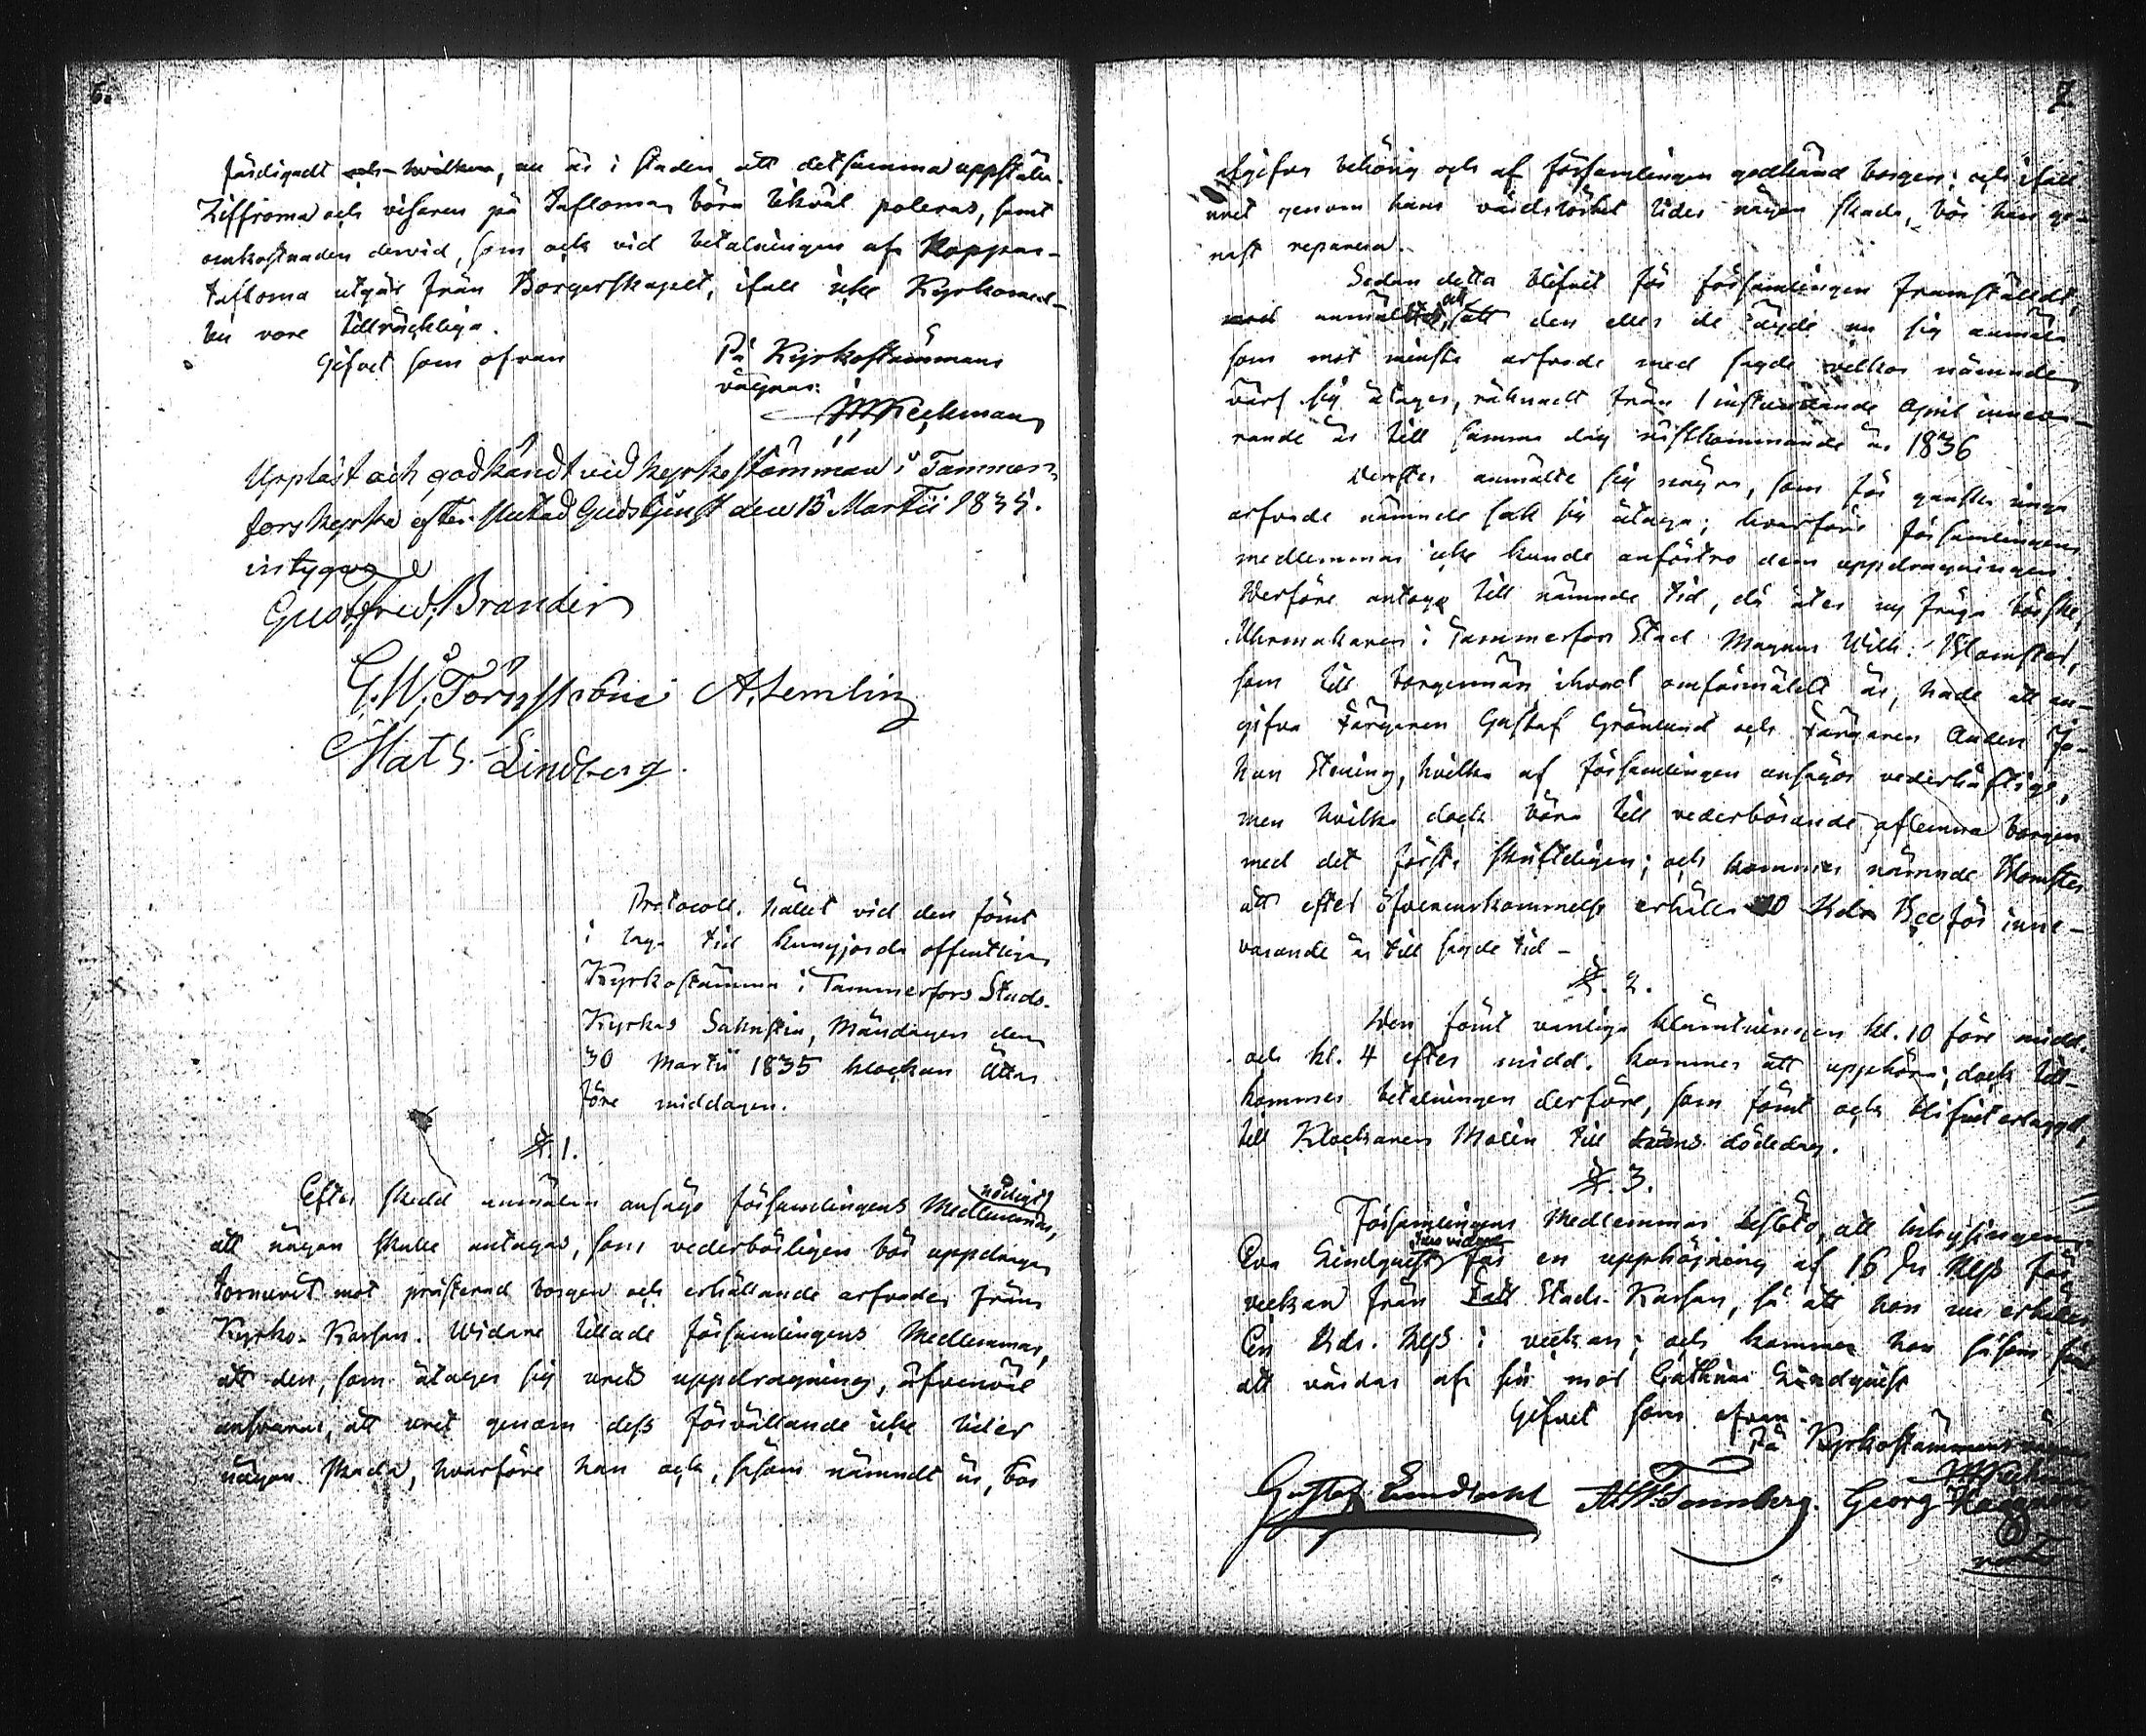 6.
färdigadt och hvilken, nu är i staden att detsamma uppställa.
Ziffrorna och visaren på Taflorna böra likväl poleras, samt
omkostnaden dervid, som ock vid betalningen af Koppar-
taflorna utgår från Borgerskapet, ifall icke Kyrkomed-
len vore tillräcklige.
Gifvet som ofvan
På Kyrkostämmans
vägnar:
Uppläst och godkändt vid kyrkostämman i Tammer-
fors kyrka efter slutad Gudstjenst den 15 Martii 1835.
intyga
Gust. Fred. Brander
G. W. Törnström A. Lemlin
Mats Lindberg.
Protocoll, hållet vid den förut
i laga tid kungjorda offentliga
Kyrkostämma i Tammerfors Stads-
Kyrkas Sakristia, Måndagen den
30 Martii 1835 klockan åtta
före middagen.
§. 1.
Efter skedd anmälan ansågo församlingens Medlemmar, nödigt
att någon skulle antagas, som vederbörligen bör uppdraga
tornuret mot presterad borgen och erhållande arfvode från
Kyrko-Kassan. Widare tillade församlingens Medlemmar,
att den, som åtager sig urets uppdragning, äfvenväl
ansvarar, att uret genom dess förvållande icke lider
någon skada, hvarföre han ock, såsom nämndt är, bör
7
afgifva behörig och af församlingen godkänd borgen; och ifall
uret genom hans vårdslöshet lider någon skada, bör han ge-
nast reparera.
Sedan detta blifvit för församlingen framställdt,
att den eller de ägde nu sig anmäla
som mot minsta arfvode med sagde vilkor nämnde
värf sig åtager, räknadt från 1 instundande April inneva-
rande år till samma dag nästkommande år 1836
Derefter anmälte sig några, som för ganska ringa
arfvode nämnde sak sig åtaga; hvarföre församlingens
medlemmar icke kunde anförtro dem uppdragningen.
Derföre antogs till nämnde tid, då åter ny fråga bör ske,
Uhrmakaren i Tammerfors Stad Magnus Wilh: Blomster,
som till borgesmän ihvad omförmäldt är, hade att an-
gifva Färgaren Gustaf Grönlund och Färgaren Anders Jo-
han Stening, hvilka af församlingen ansågos vederhäftige,
men hvilka dock böra till vederbörande aflemna borgen
med det första skrifteligen; och kommer nämnde Blomster
att efter öfverenskommelse erhålla Rdr Bco för inne-
varande år till sagde tid –
§. 2.
Den förut vanliga klämtningen kl. 10 före midd.
och kl. 4 efter midd. kommer att upphöra; dock till-
kommer betalningen derföre, som förut ock blifvit erlagd,
till Klockaren Molin till hans dödedag.
§. 3.
Församlingens Medlemmar beslöto, att inhysingen
Eva Lindqvist tills vidare får en upphöjning af 16 sk Rgs för
veckan från Stads-Kassan, så att hon nu erhåller
En Rdr. Rgs i veckan; och kommer hon såsom förut
att vårdas af sin mor Cathrina Lindqvist
Gifvet som ofvan.
På Kyrkostämmans vägnar
Gustaf A. W. Tennberg. Georg